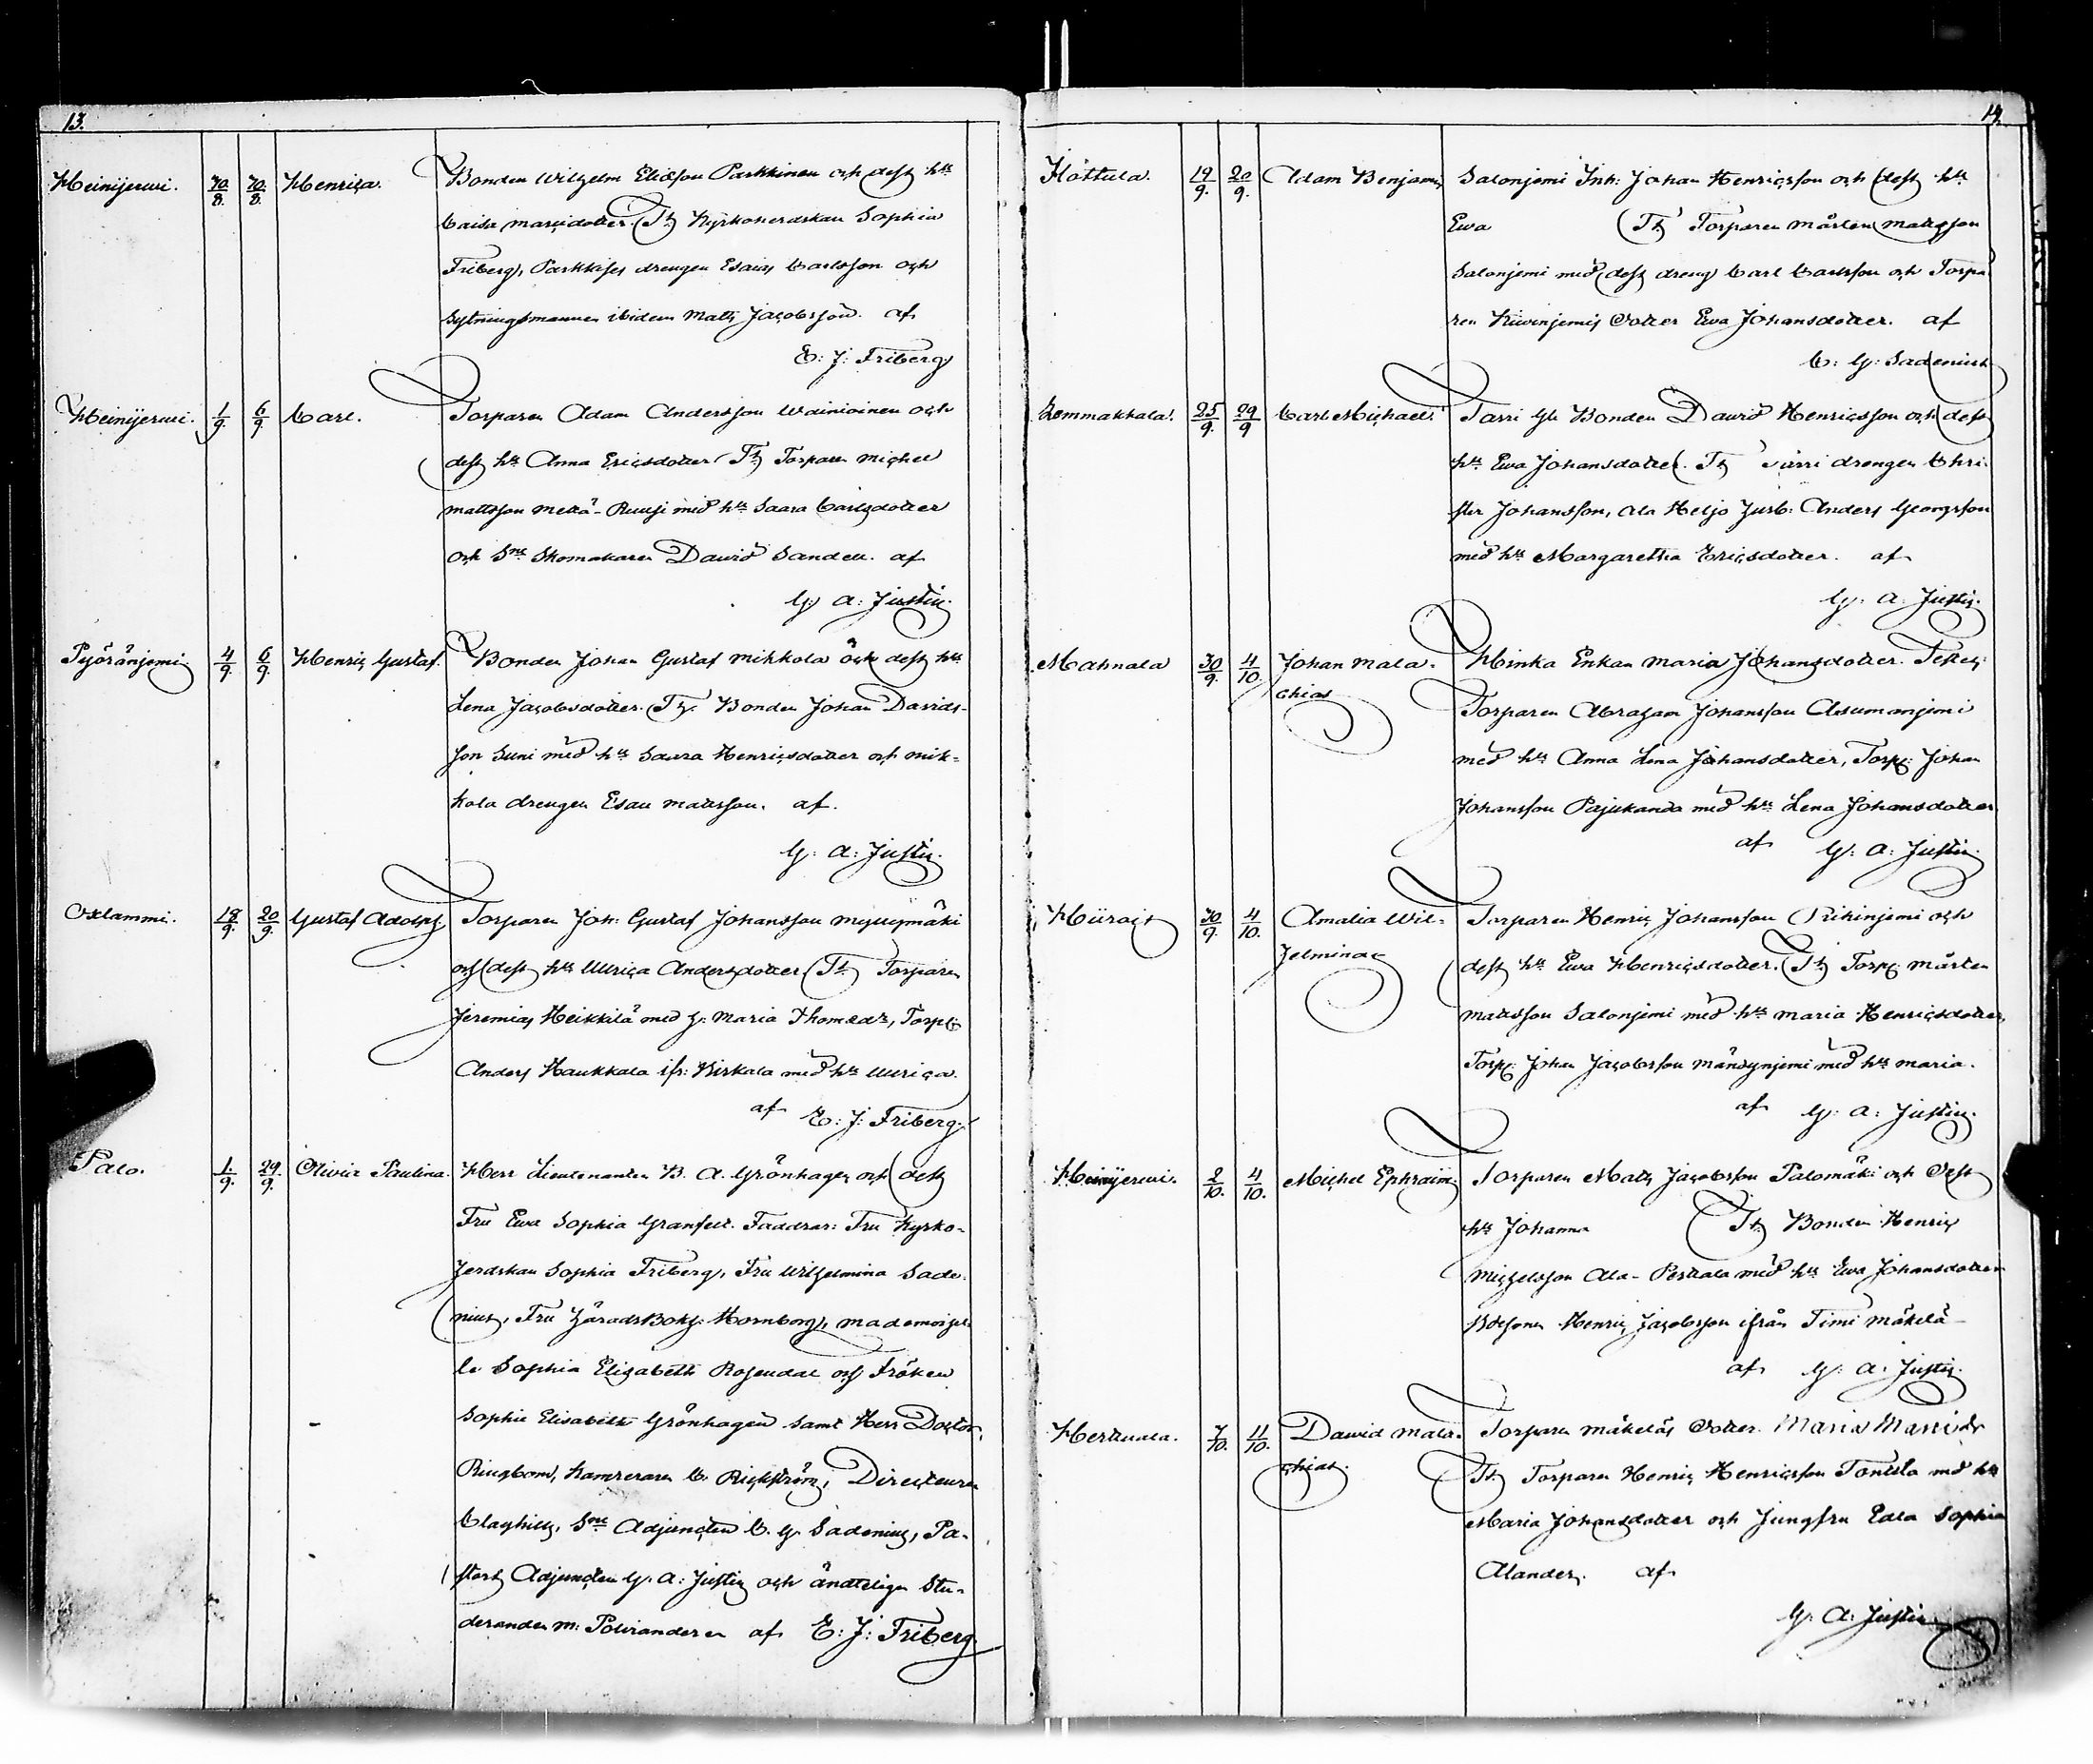 13.
Heinijerwi. 30/8. 30/8. Henrica. Bonden Wilhelm Eliæson Parkkinen och dess hu
Caisa Marcidotter. Tt. Kyrkoherdskan Sophia
Friberg, Parkkises drengen Esaias Carlsson och
Sytningsmannen ibidem Matts Jacobsson. af
E: J: Friberg.
Heinijerwi. 1/9. 6/9. Carl. Torparen Adam Andersson Wainioinen och
dess hu Anna Ericsdotter. Tt. Torparen Michel
Mattsson Mettä-Ruusi med hu Saara Carlsdotter
och Sne Skomakaren David Sandell. af
G: A: Justin.
Pyöränjemi 4/9. 6/9. Henric Gustaf. Bonden Johan Gustaf Mikkola och dess hu
Lena Jacobsdotter. Tt. Bonden Johan Davids-
son Suni med hu Saara Henricsdotter och Mik-
kola drengen Esau Mattsson. af.
G: A: Justin.
Oxlammi. 18/9. 20/9. Gustaf Adolph Torparen Joh: Gustaf Johansson Myllymäki
och dess hu Ulrica Andersdotter Tt. Torparen
Jeremias Heikkilä med h: Maria Thomædr, Torp:
Anders Haukkala ifr: Kirkala med hu Ulrica.
af E: J: Friberg.
Palo. 1/9. 29/9. Olivia Paulina. Herr Lieutenanten B. A. Grönhagen och dess
Fru Ewa Sophia Granfelt. Faddrar: Fru Kyrko-
herdskan Sophia Friberg, Fru Wilhelmina Sade-
nius, Fru Häradsböks: Hornborg, Mademoisel-
le Sophia Elisabeth Rosendal och Fröken
Sophie Elisabeth Grönhagen samt Herr Doctor
Ringbom, Kamreraren C. Rickström, Directeuren
Clayhills, Sne Adjuncten C. G. Sadenius, Pa-
stors Adjuncten G. A: Justin och ändteligen Stu-
deranden M: Polviander af E: J: Friberg.
14.
Köttula. 19/9. 20/9. Adam Benjamin Salonjemi Inh: Johan Henricsson och dess hu
Ewa Tt Torparen Mårten Mattsson
Salonjemi med dess dreng Carl Carlsson och Torpa
ren Kiwinjemis dotter Ewa Johansdotter. af
C: G: Sadenius
Kemmakkala. 25/9. 29/9 Carl Michael. Tarri gl: Bonden David Henricsson och dess
hu Ewa Johansdotter. Tt Tarri drengen Chri-
ster Johansson, Ala Heljo Jusb: Anders Georgsson
med hu Margaretha Ericsdotter. af
G: A: Justin.
Mahnala 30/9. 4/10. Johan Mala- Hinka Enkan Maria Johansdotter. Testes:
chias Torparen Abraham Johansson Assumanjemi
med hu Anna Lena Johansdotter, Torp: Johan
Johansson Pajukanda med hu Lena Johansdotter
af G: A: Justin.
Hiirois 30/9. 4/10. Amalia Wil- Torparen Henric Johansson Riihinjemi och
helmina dess hu Ewa Henricsdotter. Tt Torp: Mårten
Mattsson Salonjemi med hu Maria Henricsdotter,
Torp: Johan Jacobsson Mändynjemi med hu Maria.
af G: A: Justin.
Heinijerwi. 2/10. 4/10. Michel Ephraim. Torparen Mats Jacobsson Palomäki och Dess
hu Johanna Tt Bonden Henric
Michelsson Ala-Perttala med hu Ewa Johansdotter
Bdesonen Henric Jacobsson ifrån Timi Mäkelä
af G: A: Justin.
Herttuala. 7/10. 11/10. David Mala- Torparen Mäkeläs dotter. Maria Marcidr
chias. Tt Torparen Henric Henricsson Tontila med hu
Maria Johansdotter och Jungfru Edla Sophia
Alander. af
G: A: Justin